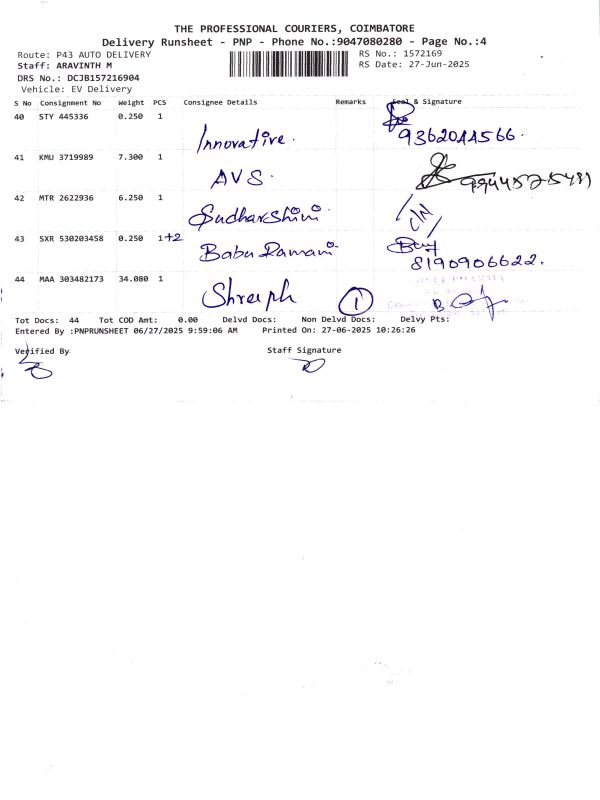 THE PROFESSIONAL COURIERS, COIMBATORE
Delivery Runsheet - PNP - Phone No.:9047080280 - Page No.:4
Route: P43 AUTO DELIVERY RS No.: 1572169
Staff: ARAVINTH M RS Date: 27-Jun-2025
DRS No.: DCJB157216904
Vehicle: EV Delivery
S No Consignment No Weight PCS Consignee Details Remarks Seal & Signature
40 STY 445336 0.250 1
Innovative. 9362044566.
41 KMU 3719989 7.300 1
AVS.
42 MTR 2622936 6.250 1
Sudharshini
43 SXR 530203458 0.250 1+2
Babu Ramani 8190906622.
44 MAA 303482173 34.080 1
Shreeph 1
Tot Docs: 44 Tot COD Amt: 0.00 Delvd Docs: Non Delvd Docs: Delvy Pts:
Entered By :PNPRUNSHEET 06/27/2025 9:59:06 AM Printed On: 27-06-2025 10:26:26
Verified By Staff Signature